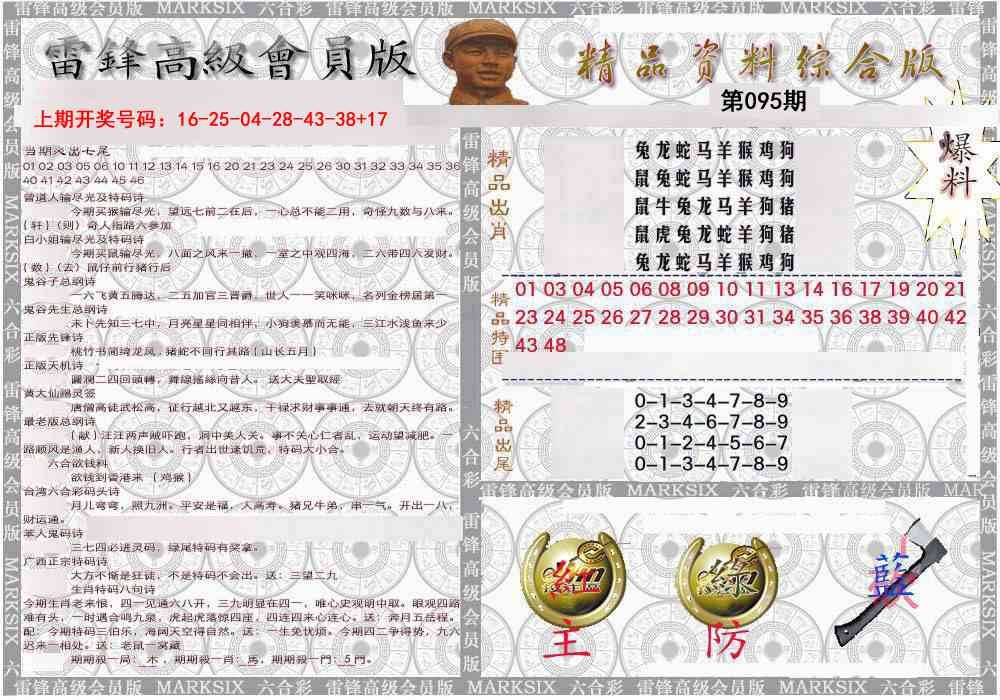 雷鋒高級會員版
精品资料综合版
第095期
上期开奖号码：16-25-04-28-43-38+17
爆料
01 02 03 05 06 10 11 12 13 14 15 16 20 21 23 24 25 26 30 31 32 33 34 35 36
40 41 42 43 44 45 46
曾道人输尽光及特码诗
今期买猴输尽光，望远七前二在后，一心总不能二用，奇怪九数与八来。
{轩}(则)奇人指路六参加
白小姐输尽光及特码诗
今期买鼠输尽光，八面之风来一撤，一室之中观四海，二六带四六发财。
{数}(去)鼠仔前行猪行后
鬼谷子总纲诗
一六飞黄五腾达，二五加官三晋爵，世人一一笑咪咪，名列金榜居第一
鬼谷先生总纲诗
未卜先知三七中，月亮星星同相伴，小狗羡慕而无能，三江水浅鱼来少
正版先锋诗
桃竹书简绮龙凤，猪蛇不同行其路{山长五月}
正版天机诗
送大夫聖取經
黄大仙赐灵签
唐僧高徒武松高，征行越北又越东，干禄求财事事通，去就朝天终有路。
最老版总纲诗
{献}汪汪两声贼吓跑，洞中美人关。事不关心仁者乱，运动望减肥。一
路顺风是渔人，新人换旧人。行者出世遂饥荒，特码大小合。
六合欲钱料
欲钱到香港来 {鸡猴}
台湾六合彩码头诗
月儿弯弯，照九洲。平安是福，人高寿。猪兄牛弟，串一气。开出一八，
财运通。
本人鬼码诗
三七四必进灵码，绿尾特码有奖拿。
广西正宗特码诗
大方不惭是狂徒，不是特码不会出。送：三望二九
生肖特码八句诗
今期生肖老来恨，四一见通六八开，三九明显在四一，唯心史观胡中取。眼观四路
难有头，一时遇合鸣九泉，虎起虎落惊四座，四连四来心连心。送：奔月五岳程。
配：今期特码三伯乐，海阔天空得自然。送：一生免忧烦。今期四二争得势，九六
迟来一相处。送：老鼠一窝藏
期期殺一局：木，期期殺一肖：馬，期期殺一門：5門。
精品出肖
兔龙蛇马羊猴鸡狗
鼠兔蛇马羊猴鸡狗
鼠牛兔龙马羊狗猪
鼠虎兔龙蛇羊狗猪
兔龙蛇马羊猴鸡狗
精品特围
01 03 04 05 06 08 09 10 11 13 14 16 17 19 20 21
23 24 25 26 27 28 29 30 31 34 35 36 38 39 40 42
43 48
精品出尾
0-1-3-4-7-8-9
2-3-4-6-7-8-9
0-1-2-4-5-6-7
0-1-3-4-7-8-9
紅
主
綠
防
藍